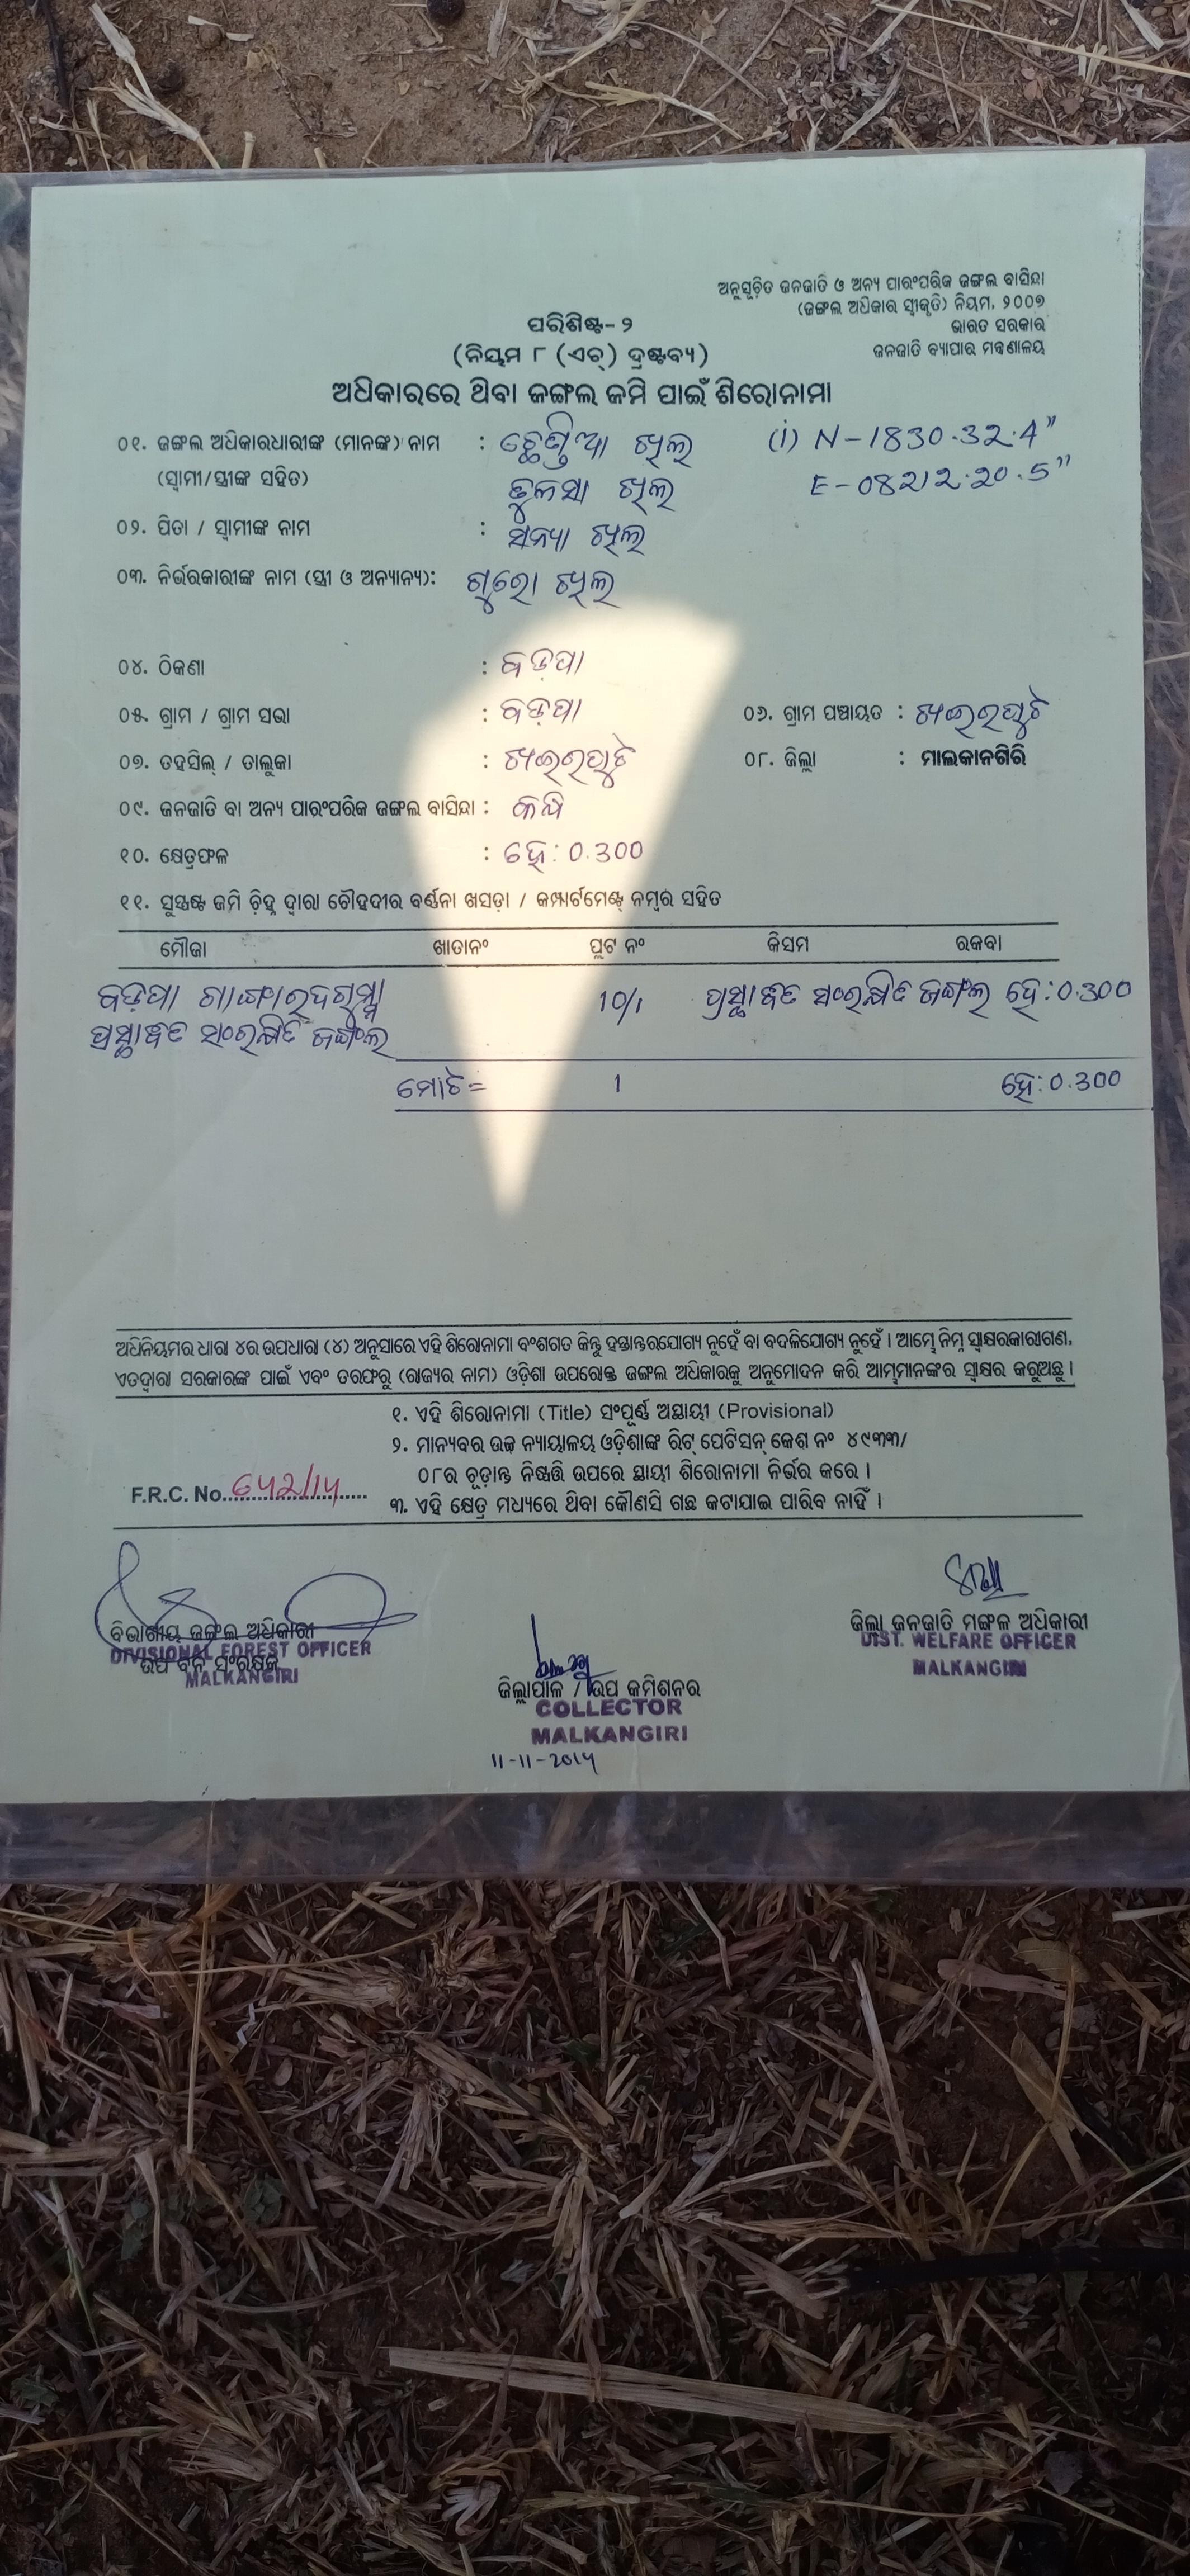 ଅନୁସୂଚିତ ଜନଜାତି ଓ ଅନ୍ୟ ପାରଂପରିକ ଜଙ୍ଗଲ ବାସିନ୍ଦା
(ଜଙ୍ଗଲ ଅଧିକାର ସ୍ୱୀକୃତି) ନିୟମ, ୨୦୦୭
ଭାରତ ସରକାର
ଜନଜାତି ବ୍ୟାପାର ମନ୍ତ୍ରଣାଳୟ
ପରିଶିଷ୍ଟ- ୨
(ନିୟମ ୮ (ଏଚ୍) ଦ୍ରଷ୍ଟବ୍ୟ)
ଅଧିକାରରେ ଥିବା ଜଙ୍ଗଲ ଜମି ପାଇଁ ଶିରୋନାମା
୦୧. ଜଙ୍ଗଲ ଅଧିକାରଧାରୀଙ୍କ (ମାନଙ୍କ) ନାମ : ଖିଲ (i) N-1830.32.4"
(ସ୍ୱାମୀ/ସ୍ତ୍ରୀଙ୍କ ସହିତ) ତୁଳସା ଖିଲ E-08212.20.5"
୦୨. ପିତା / ସ୍ୱାମୀଙ୍କ ନାମ : ସନ୍ୟା ଖିଲ
୦୩. ନିର୍ଭରକାରୀଙ୍କ ନାମ (ସ୍ତ୍ରୀ ଓ ଅନ୍ୟାନ୍ୟ): ଗୁରୋ ଖିଲ
୦୪. ଠିକଣା : ବଡ଼ପା
୦୫. ଗ୍ରାମ / ଗ୍ରାମ ସଭା : ବଡ଼ପା ୦୬. ଗ୍ରାମ ପଞ୍ଚାୟତ : ଖଇରପୁଟ
୦୭. ତହସିଲ୍ / ତାଲୁକା : ଖଇରପୁଟ ୦୮. ଜିଲ୍ଲା : ମାଲକାନଗିରି
୦୯. ଜନଜାତି ବା ଅନ୍ୟ ପାରଂପରିକ ଜଙ୍ଗଲ ବାସିନ୍ଦା : କନ୍ଧ
୧୦. କ୍ଷେତ୍ରଫଳ : ହେ: 0.300
୧୧. ସୁସ୍ପଷ୍ଟ ଜମି ଚିହ୍ନ ଦ୍ୱାରା ଚୌହଦୀର ବର୍ଣ୍ଣନା ଖସଡ଼ା / କମ୍ପାର୍ଟମେଣ୍ଟ୍ ନମ୍ବର ସହିତ
ମୌଜା ଖାତାନଂ ପ୍ଲଟ ନଂ କିସମ ରକବା
ବଡ଼ପା 10/1 ପ୍ରସ୍ଥାବିତ ସଂରକ୍ଷିତ ଜଙ୍ଗଲ ହେ: 0.300
ପ୍ରସ୍ଥାବିତ ସଂରକ୍ଷିତ ଜଙ୍ଗଲ
ମୋଟ = 1 ହେ: 0.300
ଅଧିନିୟମର ଧାରା ୪ର ଉପଧାରା (୪) ଅନୁସାରେ ଏହି ଶିରୋନାମା ବଂଶଗତ କିନ୍ତୁ ହସ୍ତାନ୍ତରଯୋଗ୍ୟ ନୁହେଁ ବା ବଦଳିଯୋଗ୍ୟ ନୁହେଁ । ଆମ୍ଭେ ନିମ୍ନ ସ୍ୱାକ୍ଷରକାରୀଗଣ,
ଏତଦ୍ୱାରା ସରକାରଙ୍କ ପାଇଁ ଏବଂ ତରଫରୁ (ରାଜ୍ୟର ନାମ) ଓଡ଼ିଶା ଉପରୋକ୍ତ ଜଙ୍ଗଲ ଅଧିକାରକୁ ଅନୁମୋଦନ କରି ଆମ୍ଭମାନଙ୍କର ସ୍ୱାକ୍ଷର କରୁଅଛୁ ।
୧. ଏହି ଶିରୋନାମା (Title) ସଂପୂର୍ଣ୍ଣ ଅସ୍ଥାୟୀ (Provisional)
୨. ମାନ୍ୟବର ଉଚ୍ଚ ନ୍ୟାୟାଳୟ ଓଡ଼ିଶାଙ୍କ ରିଟ୍ ପେଟିସନ୍ କେଶ ନଂ ୪୯୩୩/
୦୮ର ଚୂଡ଼ାନ୍ତ ନିଷ୍ପତ୍ତି ଉପରେ ସ୍ଥାୟୀ ଶିରୋନାମା ନିର୍ଭର କରେ ।
F.R.C. No.
୩. ଏହି କ୍ଷେତ୍ର ମଧ୍ୟରେ ଥିବା କୌଣସି ଗଛ କଟାଯାଇ ପାରିବ ନାହିଁ ।
ବିଭାଗୀୟ ଜଙ୍ଗଲ ଅଧିକାରୀ
DIVISIONAL FOREST OFFICER
ଉପ ବନ ସଂରକ୍ଷକ
MALKANGIRI
ଜିଲ୍ଲାପାଳ / ଉପ କମିଶନର
COLLECTOR
MALKANGIRI
11-11-2014
ଜିଲ୍ଲା ଜନଜାତି ମଙ୍ଗଳ ଅଧିକାରୀ
DIST. WELFARE OFFICER
MALKANGIRI